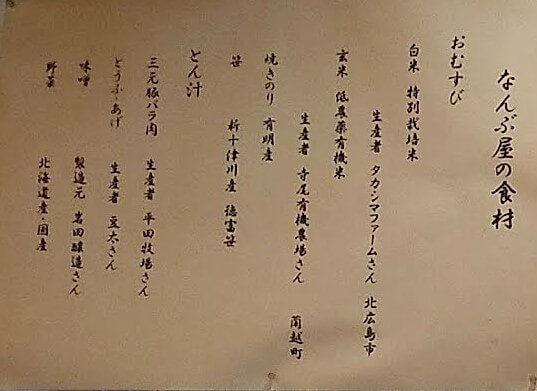 なんぶ屋の食材
おむすび
白米 特別栽培米
生産者 タカシマファームさん 北広島市
玄米 低農薬有機米
生産者 寺尾有機農場さん 蘭越町
焼きのり 有明産
笹 新十津川産 徳富笹
とん汁
三元豚バラ肉 生産者 平田牧場さん
とうふ・あげ 生産者 豆太さん
味噌 製造元 岩田醸造さん
野菜 北海道産・国産